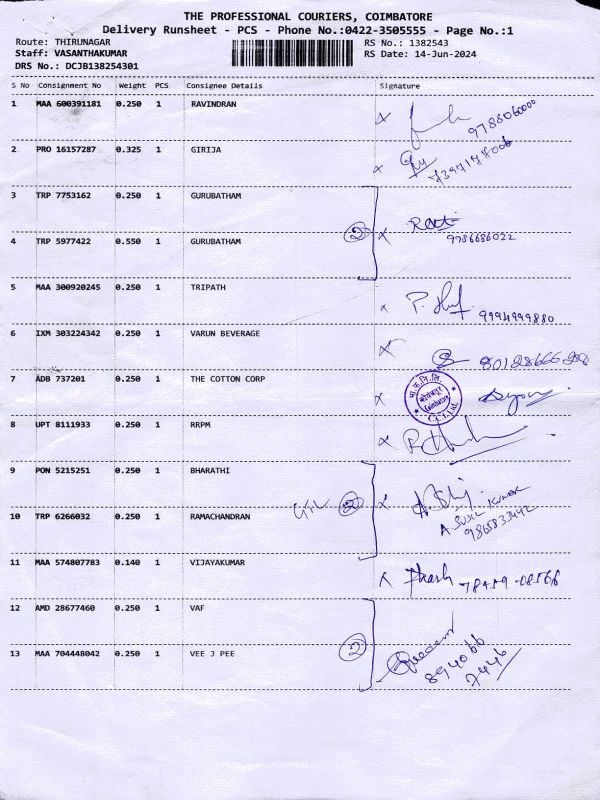 THE PROFESSIONAL COURIERS, COIMBATORE
Delivery Runsheet - PCS - Phone No.:0422-3505555 - Page No.:1
Route: THIRUNAGAR
RS No.: 1382543
Staff: VASANTHAKUMAR
RS Date: 14-Jun-2024
DRS No.: DCJB138254301
S No Consignment No Weight PCS Consignee Details Signature
1 MAA 600391181 0.250 1 RAVINDRAN
2 PRO 16157287 0.325 1 GIRIJA
3 TRP 7753162 0.250 1 GURUBATHAM
2
9786686022
4 TRP 5977422 0.550 1 GURUBATHAM
5 MAA 300920245 0.250 1 TRIPATH
9994999880
6 IXM 303224342 0.250 1 VARUN BEVERAGE
7 ADB 737201 0.250 1 THE COTTON CORP
8 UPT 8111933 0.250 1 RRPM
9 PON 5215251 0.250 1 BHARATHI
2
10 TRP 6266032 0.250 1 RAMACHANDRAN
11 MAA 574807783 0.140 1 VIJAYAKUMAR
12 AMD 28677460 0.250 1 VAF
2
894066
7446
13 MAA 704448042 0.250 1 VEE J PEE